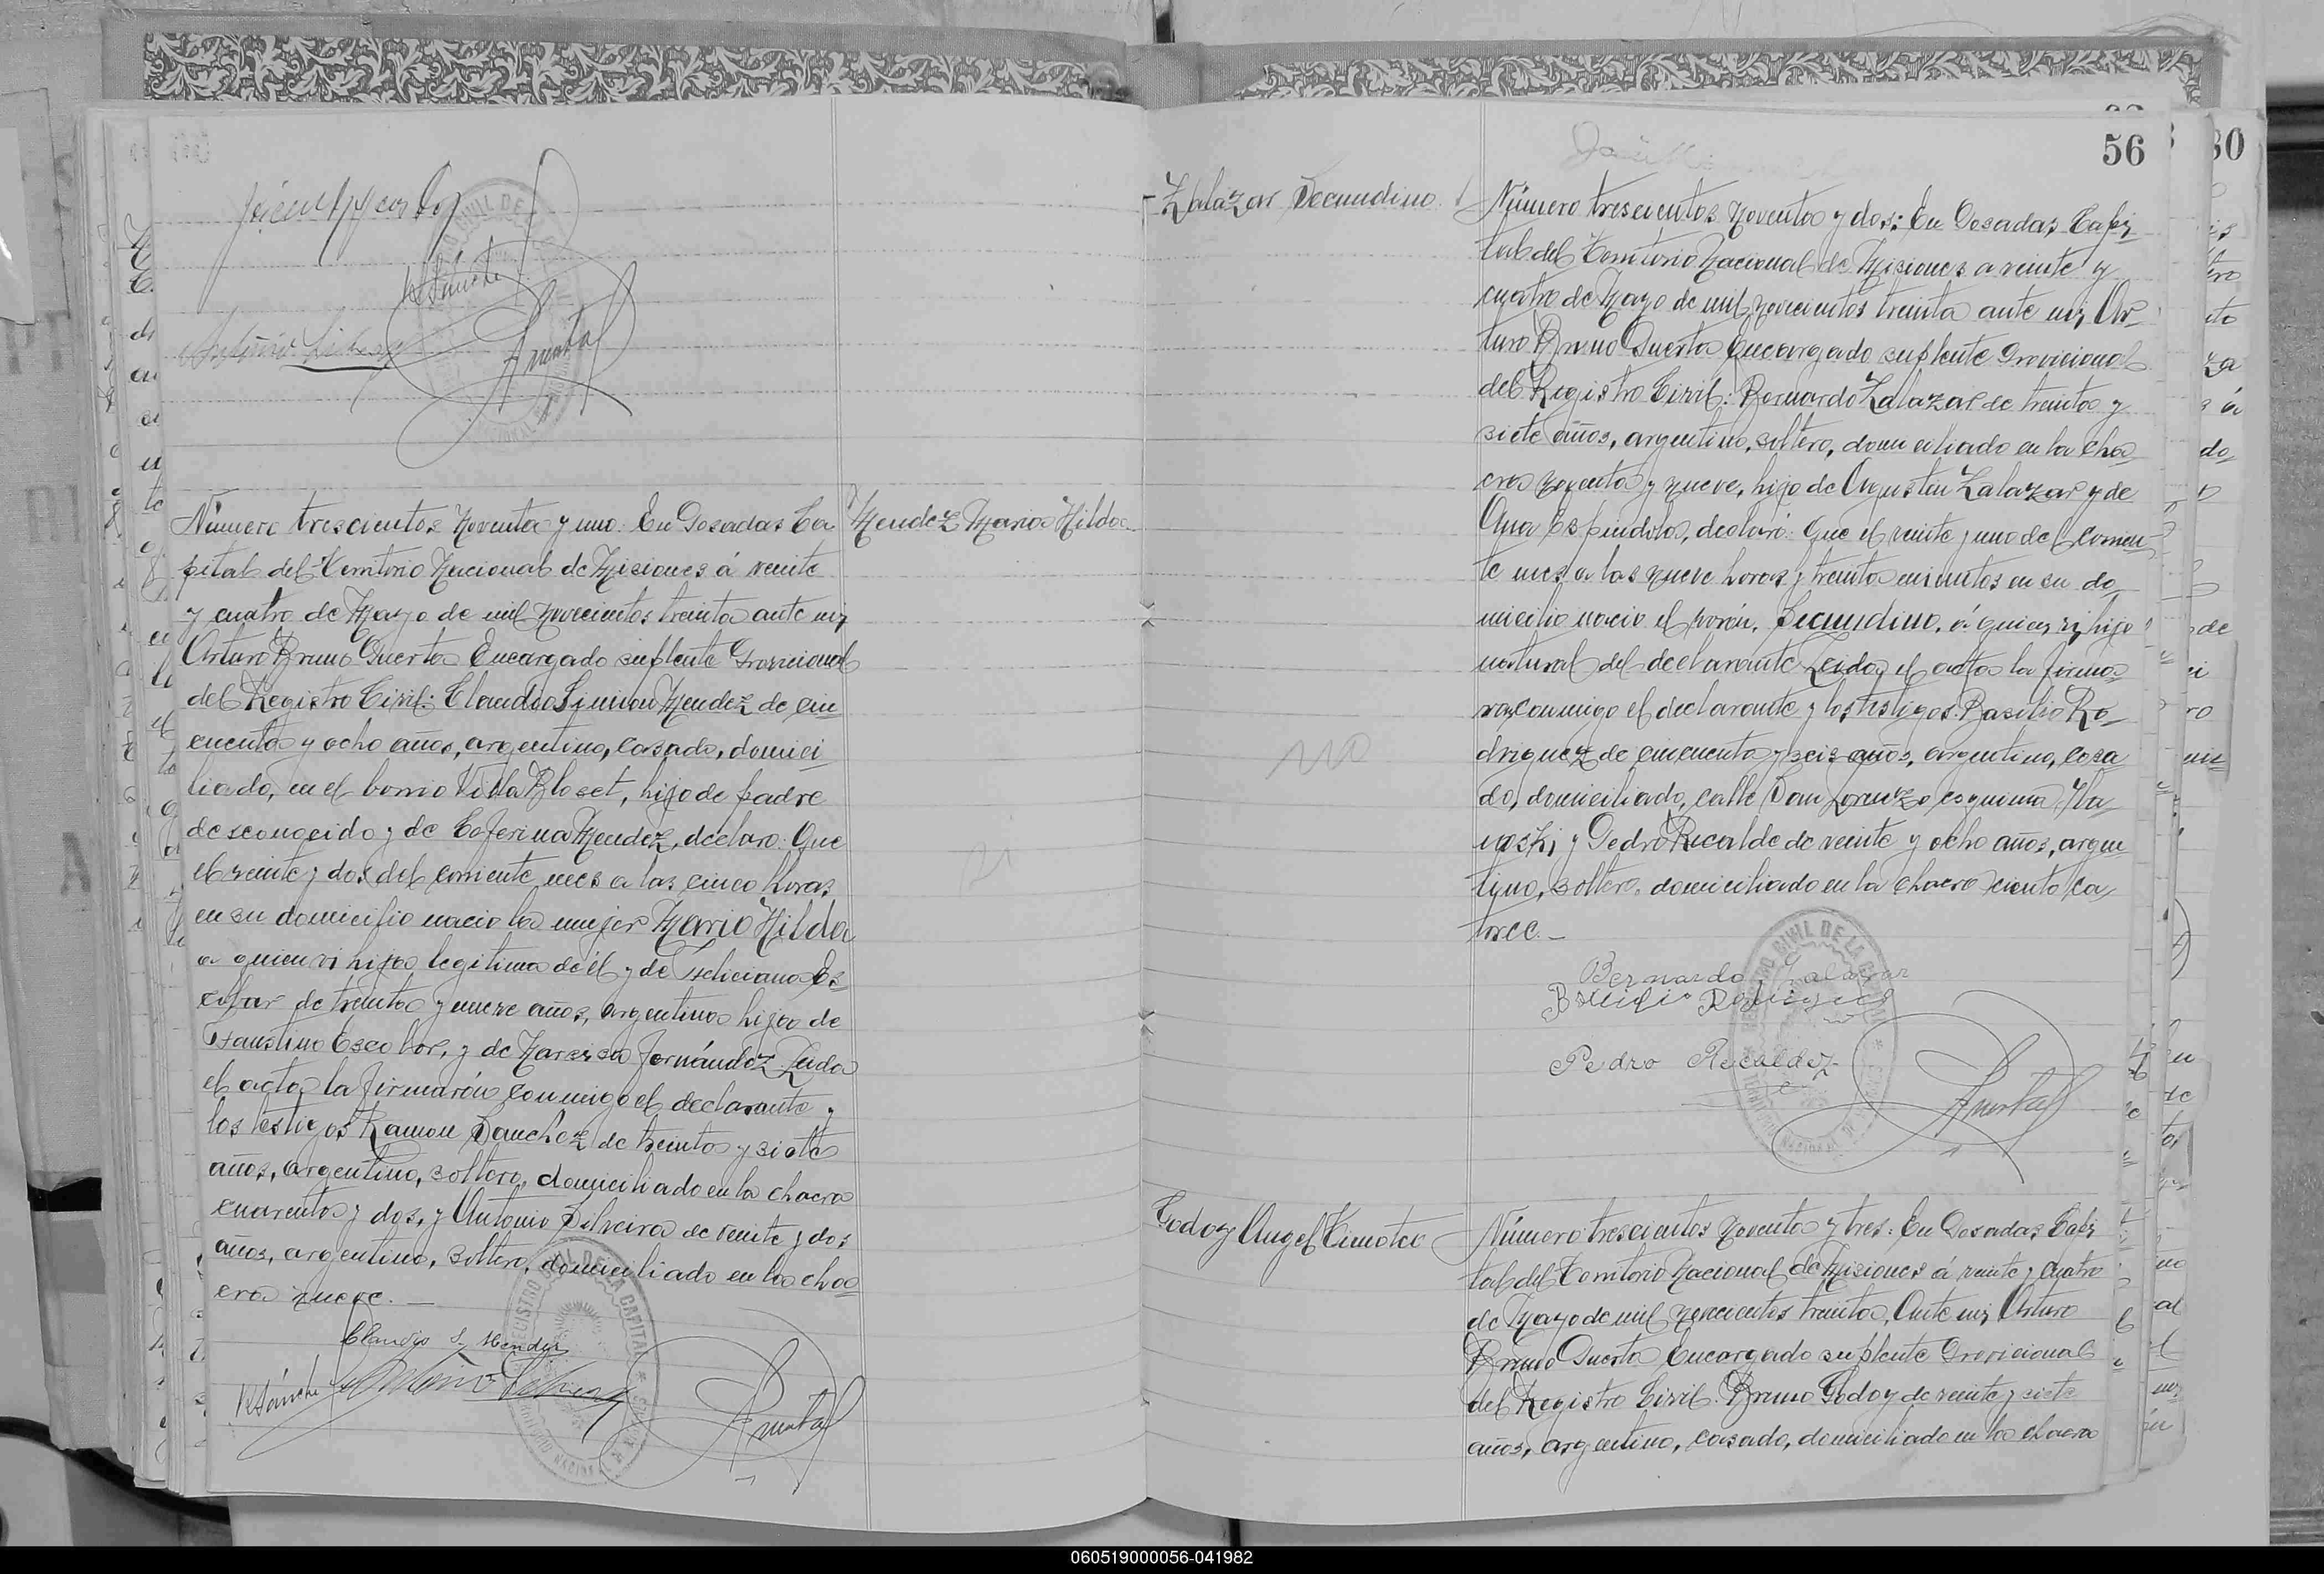 Antonio Silvera
Número trescientos noventa y uno: En Posadas Ca
pital del Territorio Nacional de Misiones á veinte
y cuatro de Mayo de mil novecientos treinta ante mi,
Arturo Bruno Puerta Encargado suplente Provicional
del Registro Civil: Claudio Simion Mendez de cin
cuenta y ocho años, argentino, casado, domici
liado, en el barrio Villa Bloset, hijo de padre
desconocido y de Ceferina Mendez, declaro: Que
el veinte y dos del corriente mes a las cinco horas
en su domicilio nacio la mujer Maria Hilda
a quien vi hija legitima de él y de Feliciana Es
cobar de treinta y nueve años, argentina hija de
Faustino Escobar, y de Narcisa Fernández Leida
el acta la firmarón conmigo el declarante y
los testigos Ramon Sanchez de treinta y siete
años, argentino, soltero, domiciliado en la chacra
cuarenta y dos, y Antonio Silveira de veinte y dos
años, argentino, soltero, domiciliado en la cha
cra nueve.
Claudio S. Mendez
RSánchez Antonio Silvera
REGISTRO CIVIL DE LA CAPITAL
Mendez Maria Hilda
56
30
Zalazar Secundino
Número trescientos noventa y dos: En Posadas, Capi
tal del Territorio Nacional de Misiones a veinte y
cuatro de Mayo de mil novecientos treinta ante mi, Ar
turo Bruno Puerta Encargado suplente Provicional
del Registro Civil: Bernardo Zalazar de treinta y
siete años, argentino, soltero, domiciliado en la cha
cra noventa y nueve, hijo de Agustin Zalazar y de
Ana Espindola, declaró: Que el veinte y uno del corrien
te mes a las nueve horas y treinta minutos en su do
micilio nacio el varón, Secundino, á quien vi, hijo
natural del declarante Leida el acta la firma
ron conmigo el declarante y los testigos: Basilio Ro
driguez de cincuenta y seis años, argentino, casa
do, domiciliado, calle San Lorenzo esquina Iva
noski y Pedro Recalde de veinte y ocho años, argen
tino, soltero, domiciliado en la chacra ciento ca
torce.
Bernardo Zalazar
Basilio Rodriguez
Pedro Recaldez
Godoy Angel Timoteo
Número trescientos noventa y tres: En Posadas Capi
tal del Territorio Nacional de Misiones á veinte y cuatro
de Mayo de mil novecientos treinta, Ante mi, Arturo
Bruno Puerta Encargado suplente Provicional
del Registro Civil: Bruno Godoy de veinte y siete
años, argentino, casado, domiciliado en la chacra
060519000056-041982